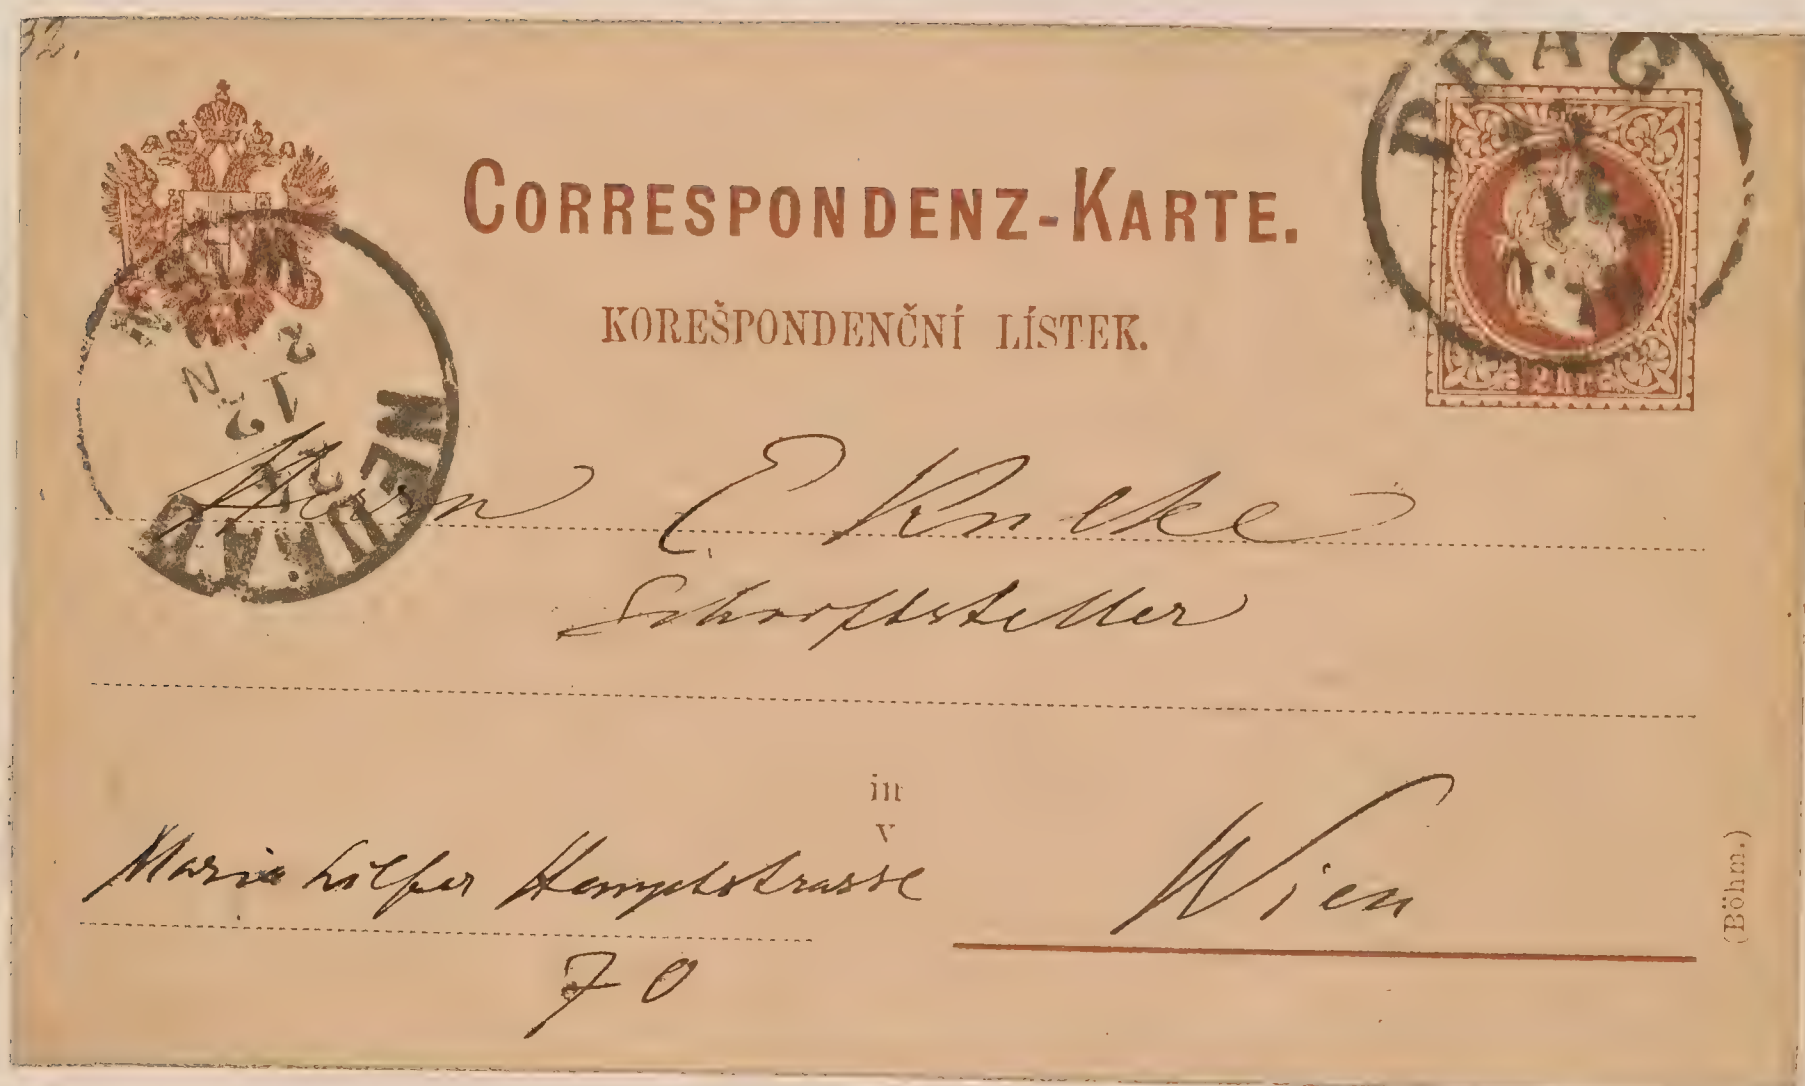 32.
PRAG
CORRESPONDENZ-KARTE.
KOREŠPONDENČNÍ LÍSTEK.
WIEN
NEUBAU
2 KR.
Herrn E.
Schriftsteller
in
v
Mariahilfer Hauptstrasse
Wien
70
(Böhm.)